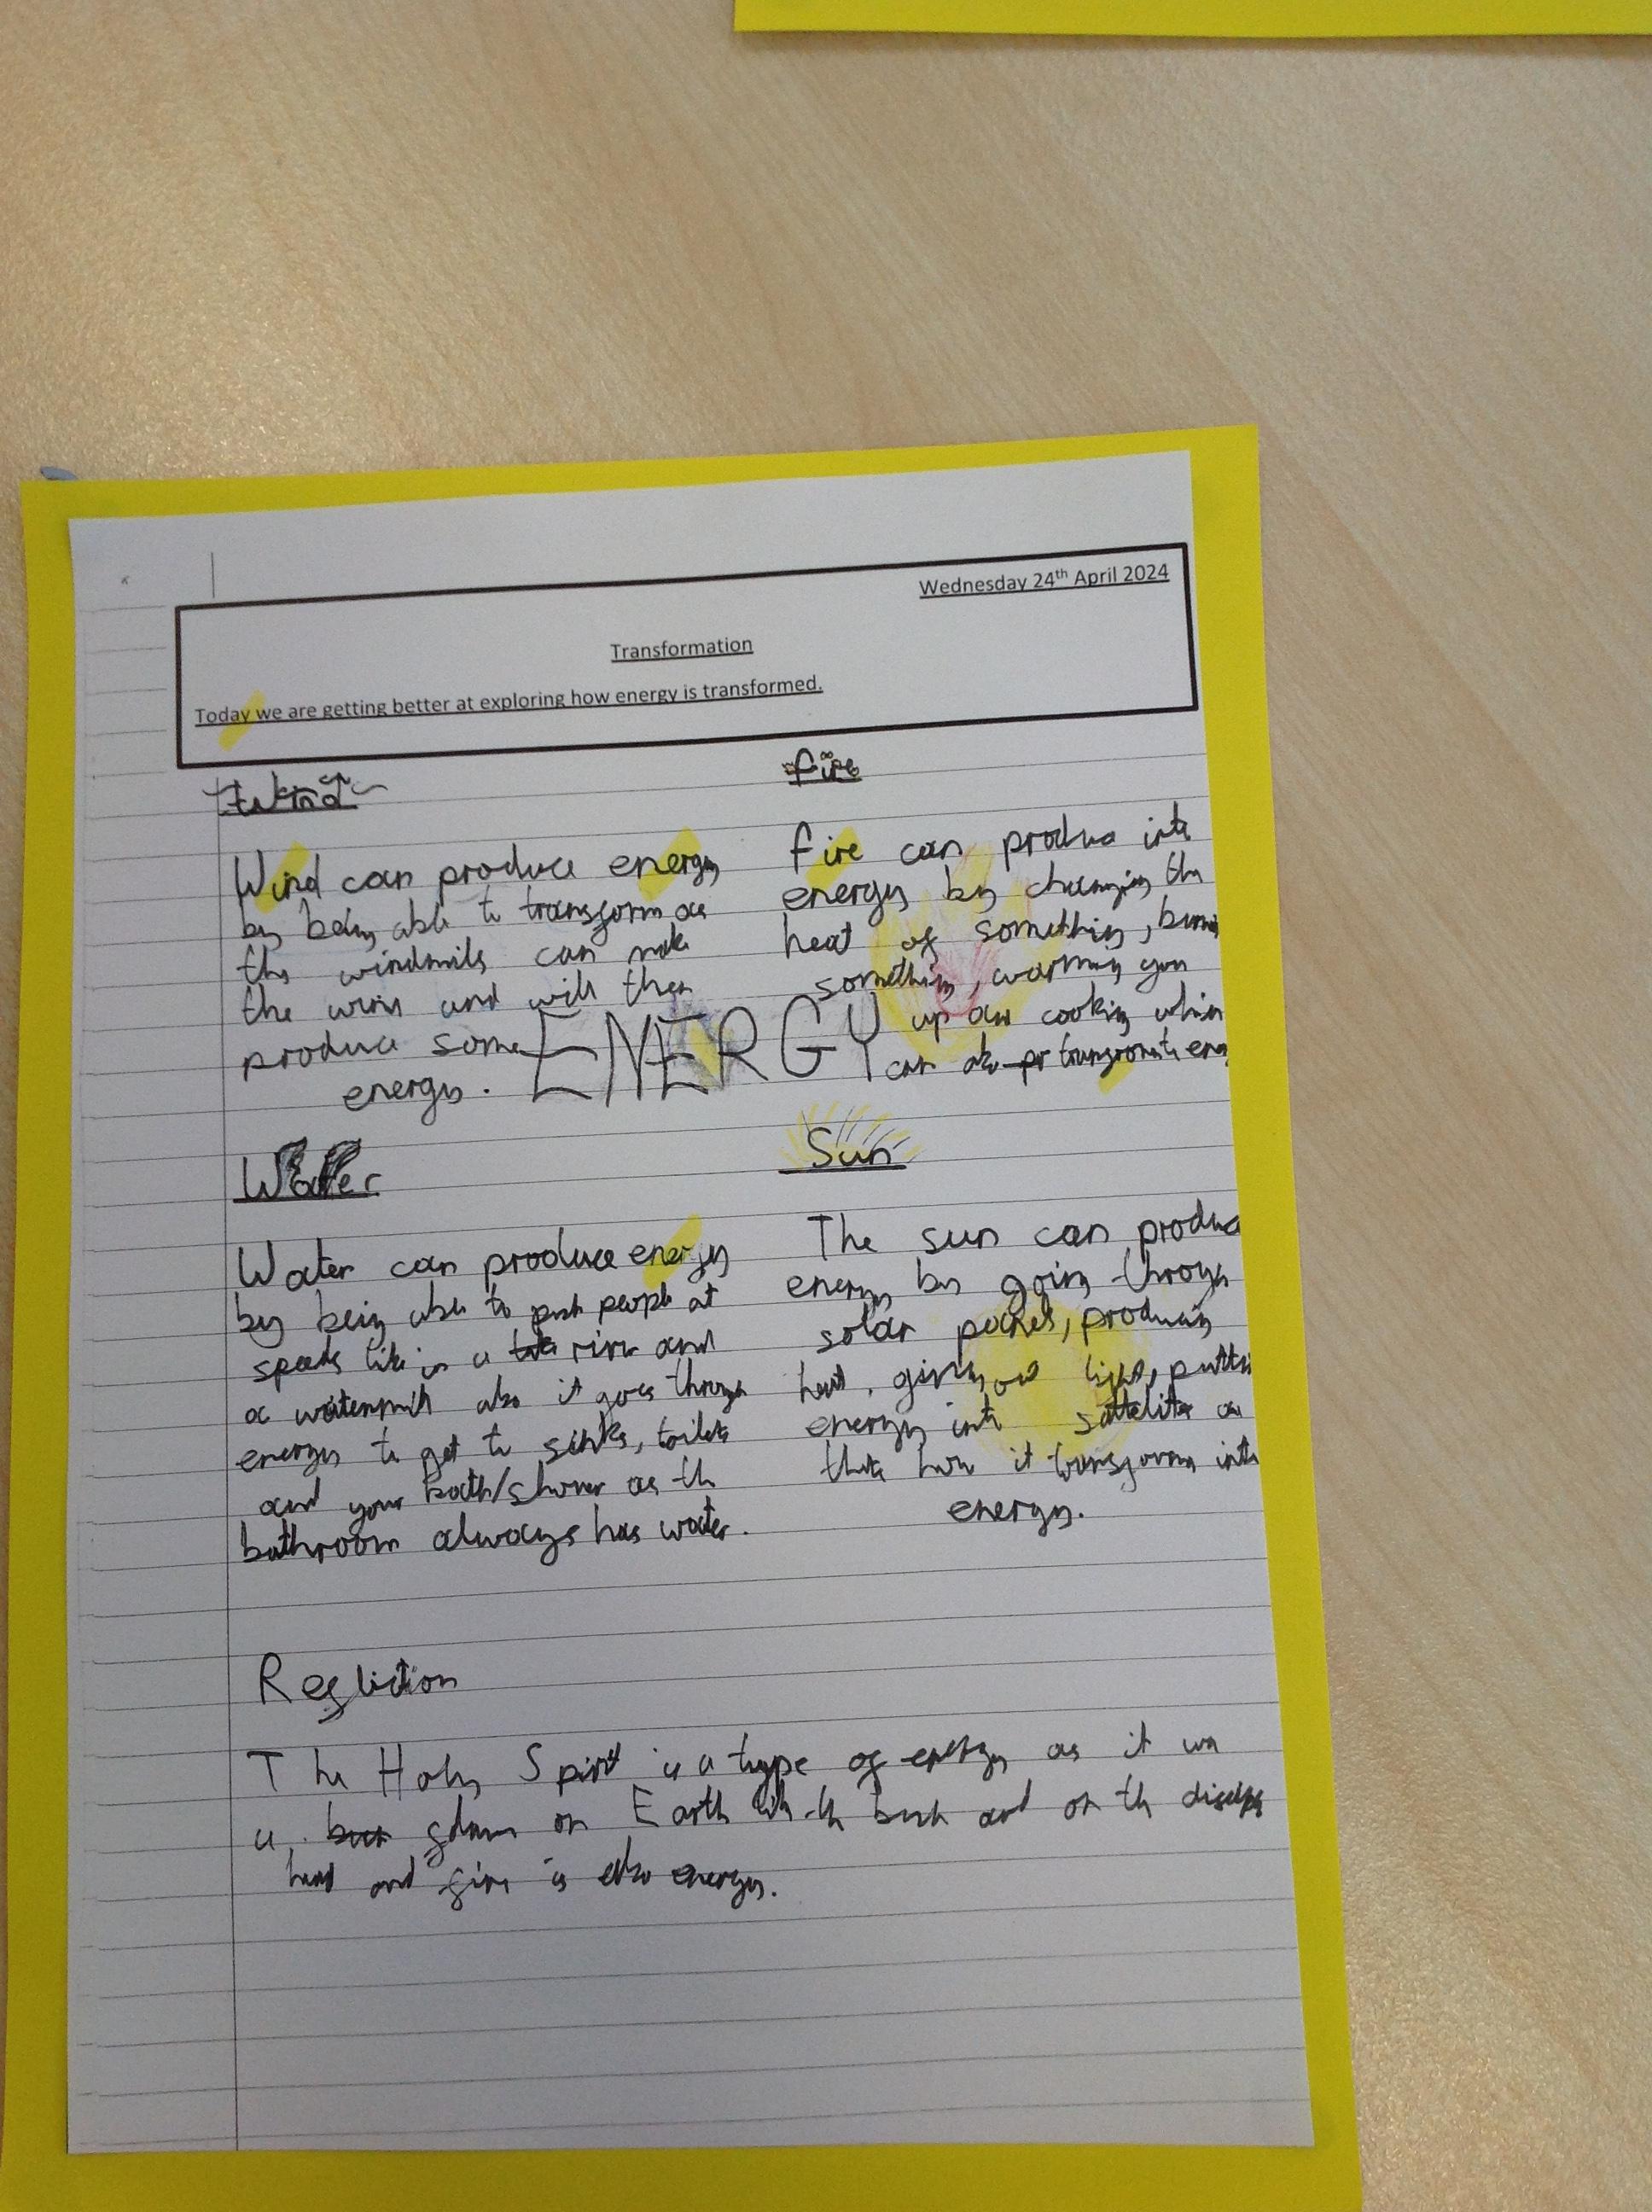 Wednesday 24th April 2024
Transformation
Today we are getting better at exploring how energy is transformed.
Wind
Wind can produce energy
by being able to transform as
the windmils can make
the wind and will then
produce some
energy.
fire
fire can produce into
energy by changing the
heat of something,
something, warming you
up and cooking which
can also
ENERGY
Water
Water can produce energy
by being able to push people at
speeds like in a river and
a watermill also it goes through
energy to get to sinks, toilets
and your bath/shower as the
bathroom always has water.
Sun
The sun can produce
energy by going through
solar panels, producing
heat, giving out light, putting
energy into
how it transforms into
energy.
Reflection
The Holy Spirit is a type of energy as it
on Earth and on the
head and fire is also energy.